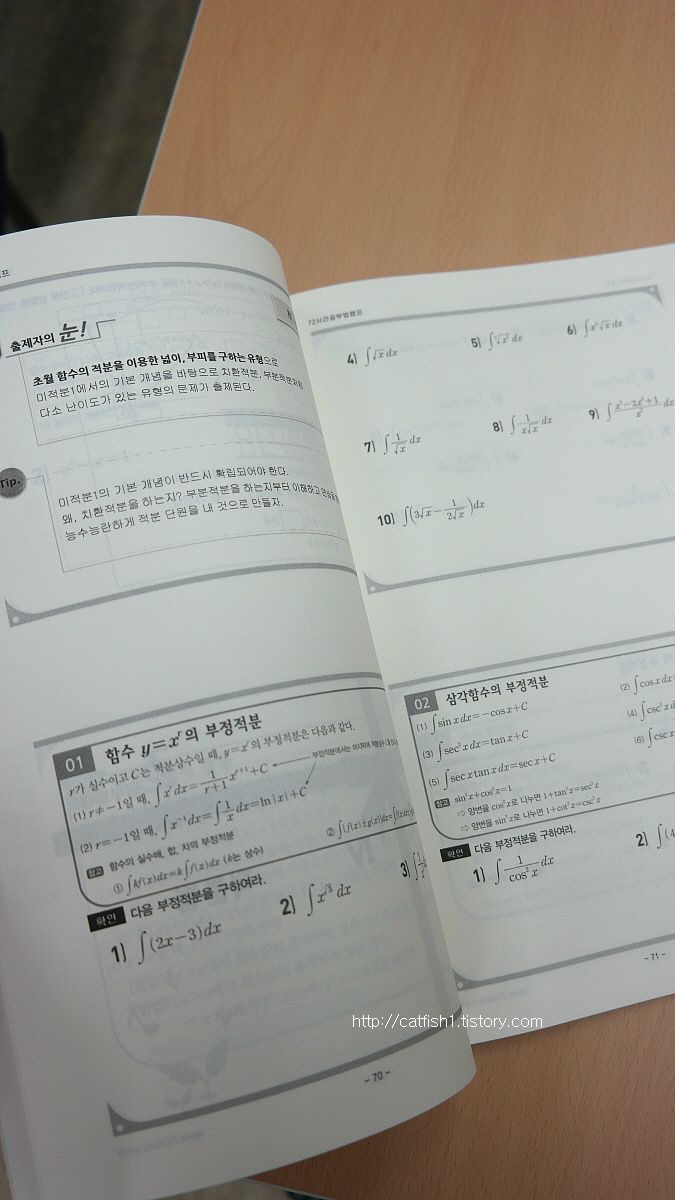 출제자의 눈!
초월 함수의 적분을 이용한 넓이, 부피를 구하는 유형으로
미적분1에서의 기본 개념을 바탕으로 치환적분, 부분적분처럼
다소 난이도가 있는 유형의 문제가 출제된다.
Tip.
미적분1의 기본 개념이 반드시 확립되어야 한다.
왜, 치환적분을 하는지? 부분적분을 하는지부터 이해하고
능수능란하게 적분 단원을 내 것으로 만들자.
01 함수 y=x^r의 부정적분
r가 실수이고 C는 적분상수일 때, y=x^r의 부정적분은 다음과 같다.
(1) r≠-1일 때, ∫x^r dx=1/(r+1) x^(r+1)+C
(2) r=-1일 때, ∫x^-1 dx=∫1/x dx=ln|x|+C
참고 함수의 실수배, 합, 차의 부정적분
① ∫kf(x)dx=k∫f(x)dx (k는 상수)
확인 다음 부정적분을 구하여라.
1) ∫(2x-3)dx
2) ∫x^√3 dx
3)
- 70 -
72시간공부법캠프
4) ∫√x dx
5)
6)
7) ∫1/√x dx
8) ∫1/(x√x) dx
9)
10) ∫(3√x-1/(2√x))dx
02 삼각함수의 부정적분
(1) ∫sin x dx=-cos x+C
(2) ∫cos x dx=
(3) ∫sec²x dx=tan x+C
(4) ∫csc²x d
(5) ∫sec x tan x dx=sec x+C
(6) ∫csc x
참고 sin²x+cos²x=1
⇨ 양변을 cos²x로 나누면 1+tan²x=sec²x
⇨ 양변을 sin²x로 나누면 1+cot²x=csc²x
확인 다음 부정적분을 구하여라.
1) ∫1/cos²x dx
2) ∫(4
- 71 -
http://catfish1.tistory.com